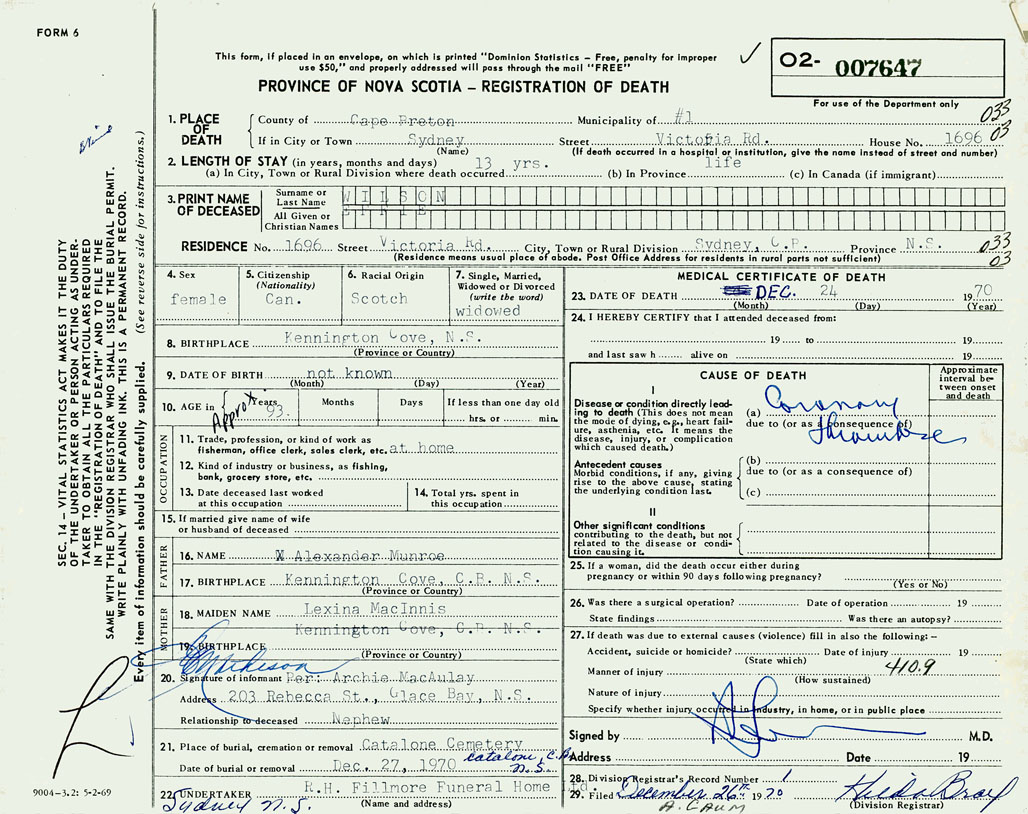 FORM 6
This form, if placed in an envelope, on which is printed "Dominion Statistics – Free, penalty for improper
use $50," and properly addressed will pass through the mail "FREE"
PROVINCE OF NOVA SCOTIA – REGISTRATION OF DEATH
02- 007647
For use of the Department only
1. PLACE OF DEATH
County of Cape Breton Municipality of #1 033
If in City or Town Sydney Street Victoria Rd. House No. 1696 03
(Name) (If death occurred in a hospital or institution, give the name instead of street and number)
2. LENGTH OF STAY (in years, months and days) 13 yrs. life
(a) In City, Town or Rural Division where death occurred (b) In Province (c) In Canada (if immigrant)
3. PRINT NAME OF DECEASED
Surname or Last Name WILSON
All Given or Christian Names EFFIE
RESIDENCE No. 1696 Street Victoria Rd. City, Town or Rural Division Sydney, C.B. Province N.S. 033
(Residence means usual place of abode. Post Office Address for residents in rural parts not sufficient) 03
4. Sex
female
5. Citizenship
(Nationality)
Can.
6. Racial Origin
Scotch
7. Single, Married,
Widowed or Divorced
(write the word)
widowed
8. BIRTHPLACE Kennington Cove, N.S.
(Province or Country)
9. DATE OF BIRTH not known
(Month) (Day) (Year)
10. AGE in Approx Years 93. Months Days If less than one day old
hrs. or min.
OCCUPATION
11. Trade, profession, or kind of work as
fisherman, office clerk, sales clerk, etc. at home
12. Kind of industry or business, as fishing,
bank, grocery store, etc.
13. Date deceased last worked
at this occupation
14. Total yrs. spent in
this occupation
15. If married give name of wife
or husband of deceased
FATHER
16. NAME Alexander Munroe
17. BIRTHPLACE Kennington Cove, C.B. N.S.
(Province or Country)
MOTHER
18. MAIDEN NAME Lexina MacInnis
Kennington Cove, C.B. N.S.
19. BIRTHPLACE
(Province or Country)
20. Signature of informant Per: Archie MacAulay
Address 203 Rebecca St., Glace Bay, N.S.
Relationship to deceased Nephew
21. Place of burial, cremation or removal Catalone Cemetery
Date of burial or removal Dec. 27, 1970 Catalone, C.B.
N.S.
R.H. Fillmore Funeral Home Ltd.
22. UNDERTAKER
Sydney N.S. (Name and address)
MEDICAL CERTIFICATE OF DEATH
23. DATE OF DEATH DEC. 24 1970
(Month) (Day) (Year)
24. I HEREBY CERTIFY that I attended deceased from:
19 to 19
and last saw h alive on 19
CAUSE OF DEATH
Approximate
interval be-
tween onset
and death
I
Disease or condition directly lead-
ing to death (This does not mean
the mode of dying, e.g., heart fail-
ure, asthenia, etc. It means the
disease, injury, or complication
which caused death.)
(a) Coronary
due to (or as a consequence of)
Thrombosis
Antecedent causes
Morbid conditions, if any, giving
rise to the above cause, stating
the underlying condition last.
(b)
due to (or as a consequence of)
(c)
II
Other significant conditions
contributing to the death, but not
related to the disease or condi-
tion causing it.
25. If a woman, did the death occur either during
pregnancy or within 90 days following pregnancy?
(Yes or No)
26. Was there a surgical operation? Date of operation 19
State findings Was there an autopsy?
27. If death was due to external causes (violence) fill in also the following:–
Accident, suicide or homicide? Date of injury 19
(State which)
Manner of injury 410.9
(How sustained)
Nature of injury
Specify whether injury occurred in industry, in home, or in public place
Signed by M.D.
Address Date 19
28. Division Registrar's Record Number 1
29. Filed December 26th 1970 Hilda Bray
(Division Registrar)
SEC. 14 – VITAL STATISTICS ACT MAKES IT THE DUTY
OF THE UNDERTAKER OR PERSON ACTING AS UNDER-
TAKER TO OBTAIN ALL THE PARTICULARS REQUIRED
IN THE "REGISTRATION OF DEATH" AND TO FILE THE
SAME WITH THE DIVISION REGISTRAR WHO SHALL ISSUE THE BURIAL PERMIT.
WRITE PLAINLY WITH UNFADING INK. THIS IS A PERMANENT RECORD.
Every item of information should be carefully supplied. (See reverse side for instructions.)
9004-3.2: 5-2-69